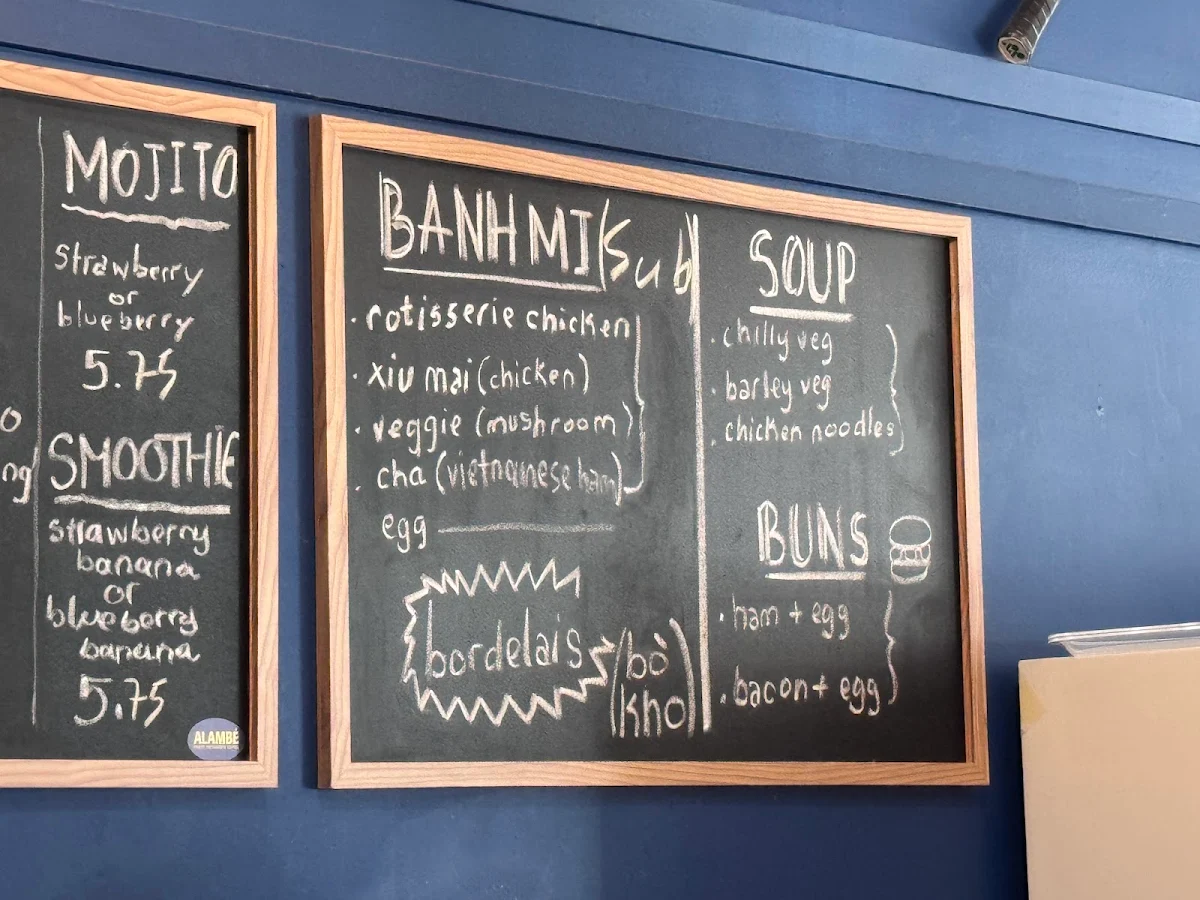 o
ng
MOJITO
strawberry
or
blueberry
5.75
SMOOTHIE
strawberry
banana
or
blueberry
banana
5.75
ALAMBÉ
BANH MI (Sub)
· rotisserie chicken
· xiu mai (chicken)
· veggie (mushroom)
· cha (vietnamese ham)
egg
bordelais (bò
kho)
SOUP
· chilly veg
· barley veg
· chicken noodles
BUNS
· ham + egg
· bacon + egg